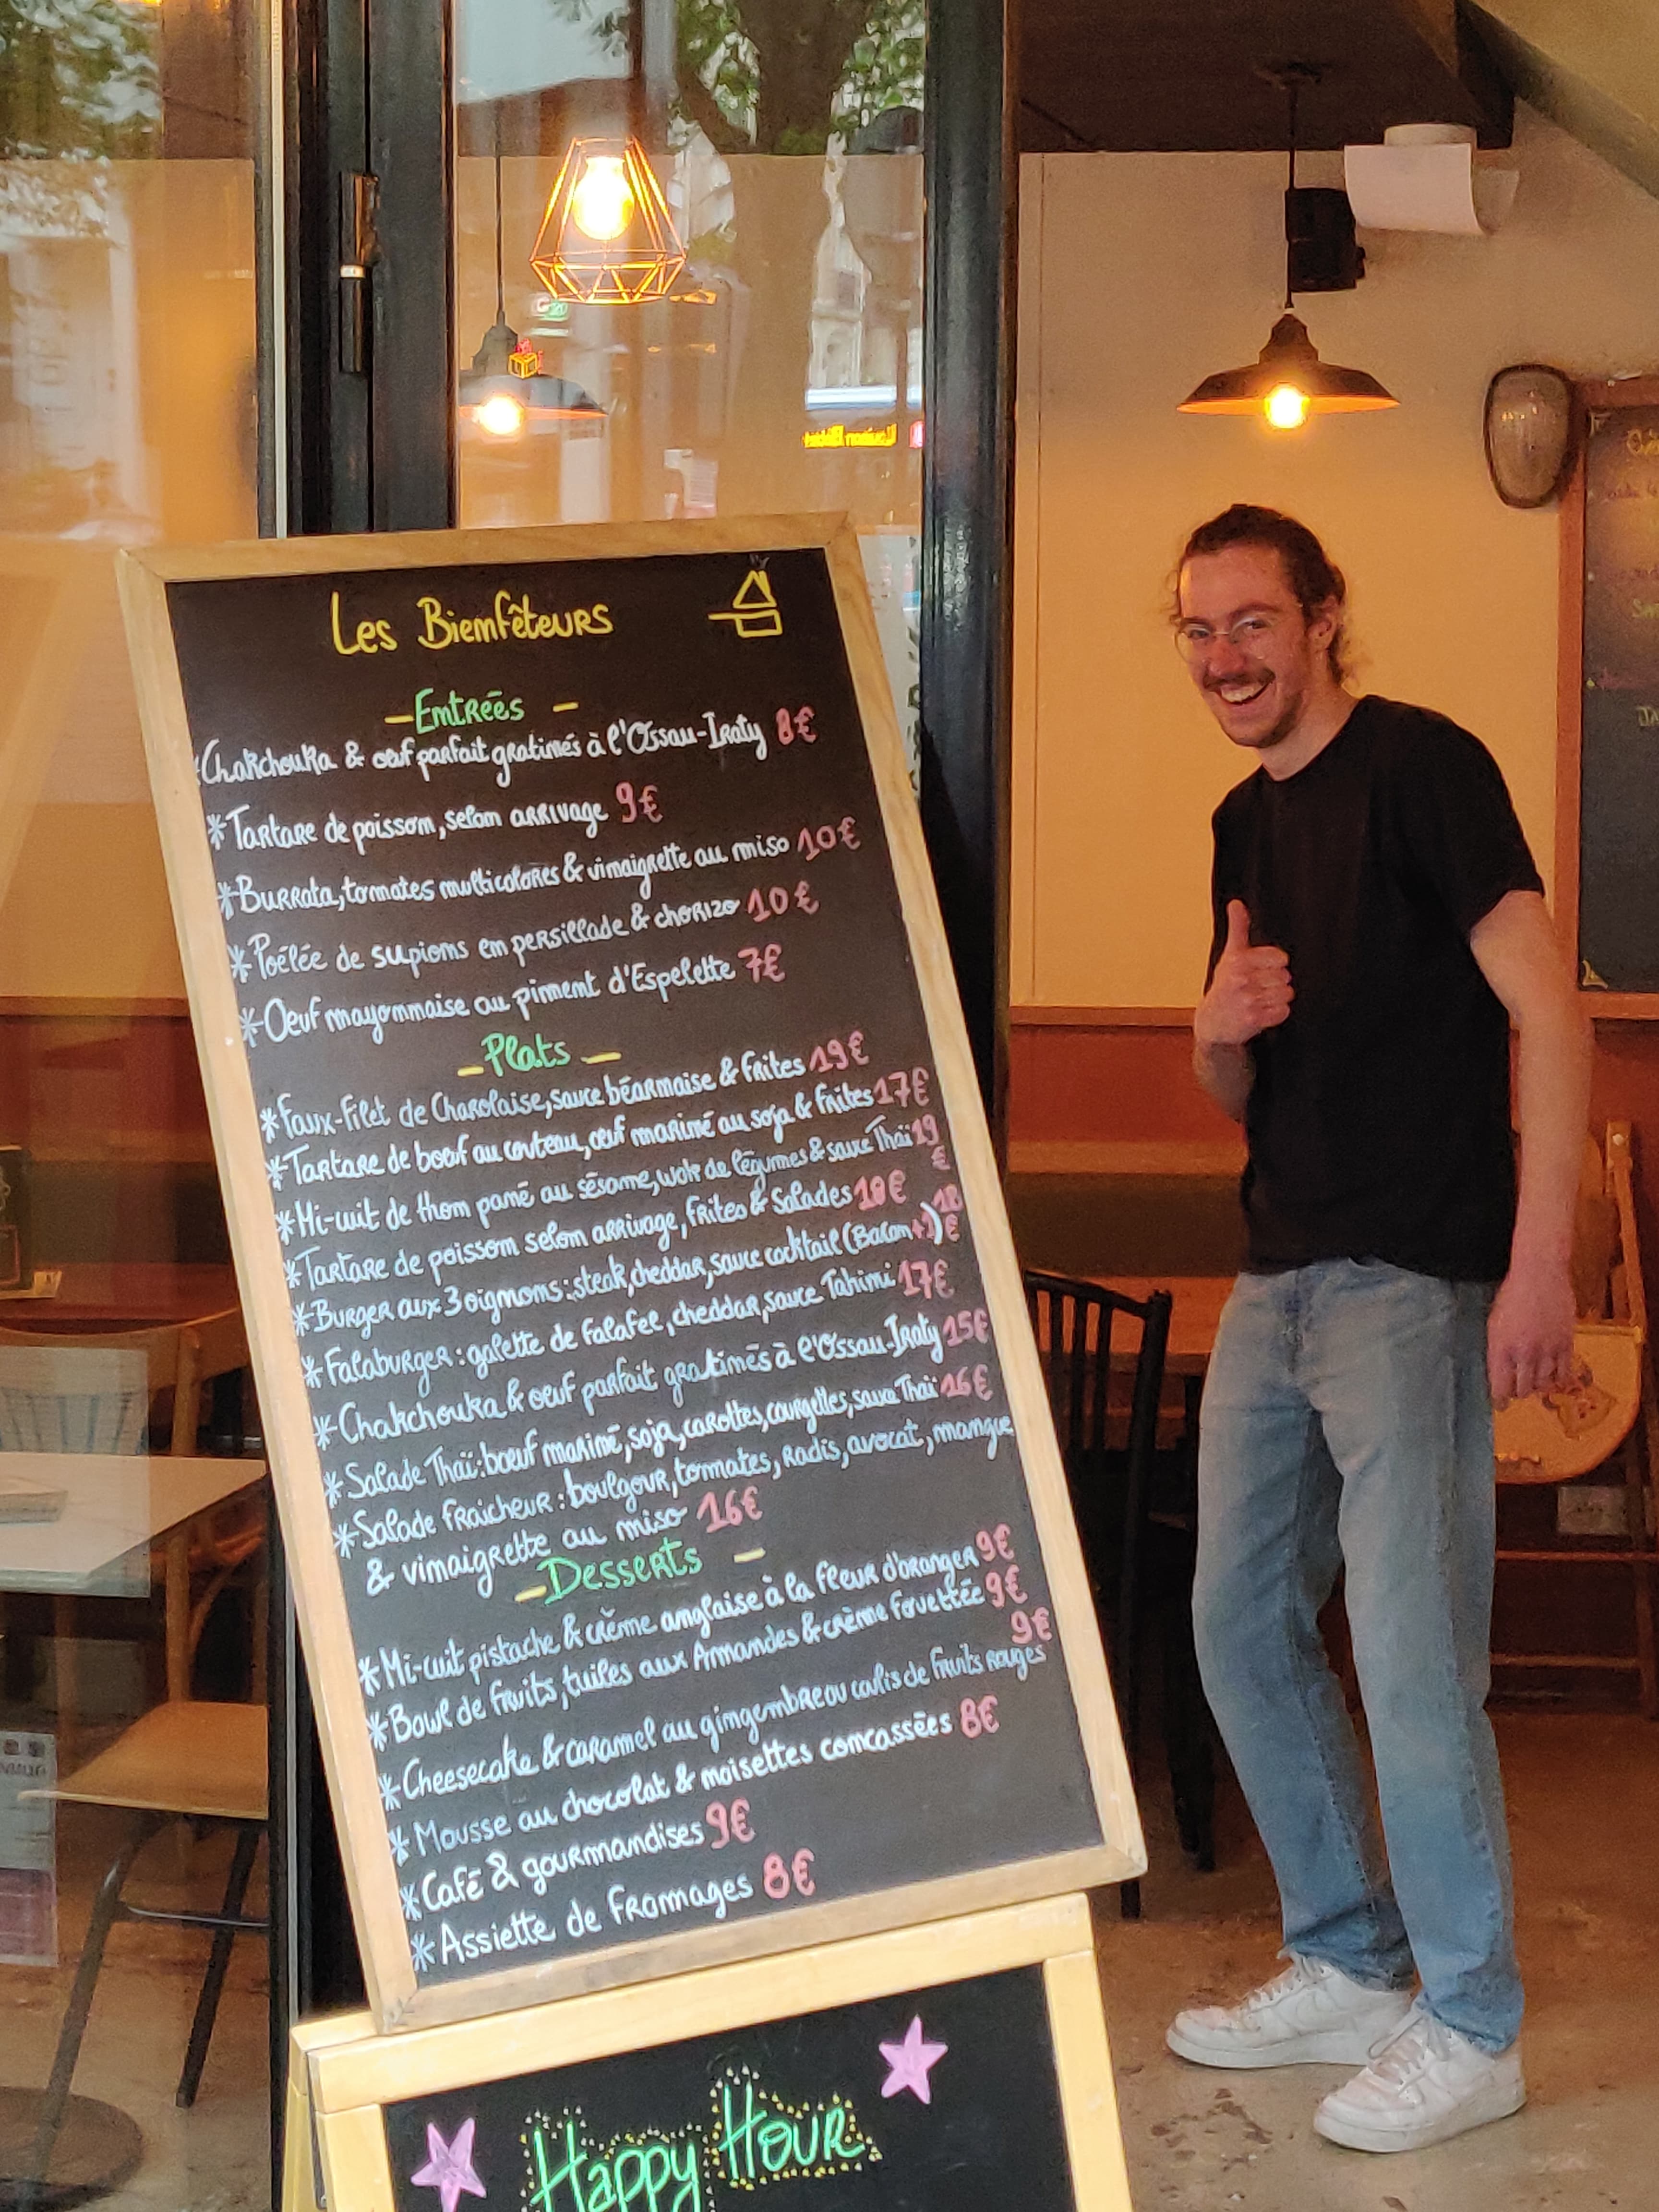 Les Bienfêteurs
- Entrées -
*Chakchouka & œuf parfait gratinés à l'Ossau-Iraty 8€
*Tartare de poisson, selon arrivage 9€
*Burrata, tomates multicolores & vinaigrette au miso 10€
*Poêlée de supions en persillade & chorizo 10€
*Oeuf mayonnaise au piment d'Espelette 7€
- Plats -
*Faux-filet de Charolaise, sauce béarnaise & frites 19€
*Tartare de boeuf au couteau, œuf mariné au soja & frites 17€
*Mi-cuit de thon pané au sésame, wok de légumes & sauce Thaï 19€
*Tartare de poisson selon arrivage, frites & Salades 18€
*Burger aux 3 oignons : steak, cheddar, sauce cocktail (Bacon +1) 18€
*Falaburger : galette de falafel, cheddar, sauce Tahini 17€
*Chakchouka & oeuf parfait gratinés à l'Ossau-Iraty 15€
*Salade Thaï : boeuf mariné, soja, carottes, courgettes, sauce Thaï 16€
*Salade fraicheur : boulgour, tomates, radis, avocat, mangue
& vinaigrette au miso 16€
- Desserts -
*Mi-cuit pistache & crème anglaise à la fleur d'oranger 9€
*Bowl de fruits, tuiles aux Amandes & crème fouettée 9€
*Cheesecake & caramel au gingembre ou coulis de fruits rouges 9€
*Mousse au chocolat & noisettes concassées 8€
*Café & gourmandises 9€
*Assiette de fromages 8€
Happy Hour